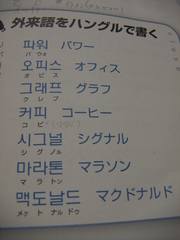 外来語をハングルで書く
파워 パワー
パウォ
오피스 オフィス
オピス
그래프 グラフ
クレプ
커피 コーヒー
コピ
시그널 シグナル
シグノル
마라톤 マラソン
マラトン
맥도날드 マクドナルド
メクトナルドゥ